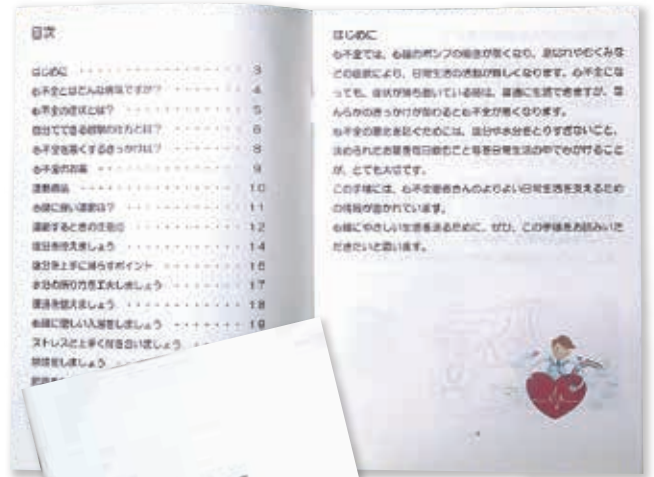 目次
はじめに ・・・・・・・・・・・・・・ 3
心不全とはどんな病気ですか? ・・・・・・・ 4
心不全の症状とは? ・・・・・・・・・・ 5
自分でできる ・・・・・ 6
心不全を悪くするきっかけは? ・・・・・・ 8
心不全のお薬 ・・・・・・・・・・・・ 9
運動療法 ・・・・・・・・・・・・・ 10
心臓に良い運動は? ・・・・・・・・・ 11
運動するときの注意点 ・・・・・・・・ 12
塩分を控えましょう ・・・・・・・・・ 14
塩分を上手に減らすポイント ・・・・・・ 16
水分の取り方を工夫しましょう ・・・・・ 17
便通を整えましょう ・・・・・・・・・ 18
心臓に優しい入浴をしましょう ・・・・・ 19
ストレスと上手く付き合いましょう
禁煙をしましょう
はじめに
心不全では、心臓のポンプの働きが悪くなり、息切れやむくみな
どの症状により、日常生活の活動が難しくなります。心不全にな
っても、症状が落ち着いている時は、普通に生活できますが、な
んらかのきっかけが加わると心不全が悪くなります。
心不全の悪化を防ぐためには、塩分や水分をとりすぎないこと、
決められたお薬を毎日飲むこと等を日常生活の中で心がけること
が、とても大切です。
この手帳には、心不全患者さんのよりよい日常生活を支えるため
の情報が書かれています。
心臓にやさしい生活を送るために、ぜひ、この手帳をお読みいた
だきたいと思います。